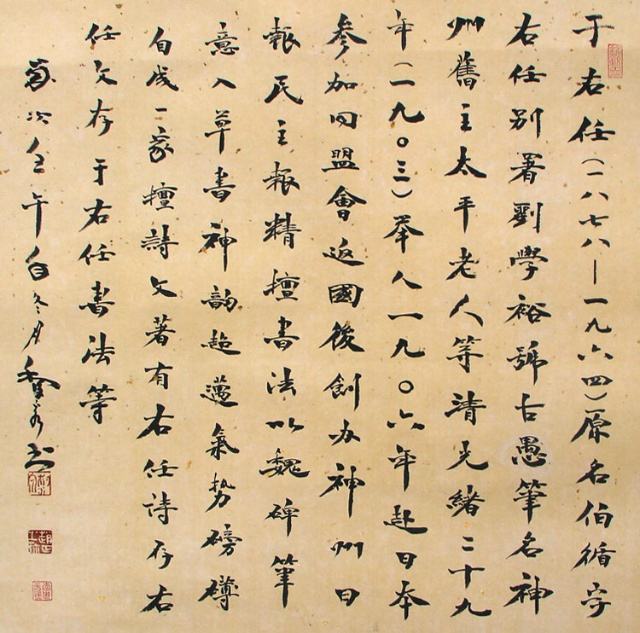 于右任(一八七八—一九六四)原名伯循字
右任别署劉學裕號古愚筆名神
州舊主太平老人等清光緒二十九
年(一九〇三)举人一九〇六年赴日本
參加同盟會返國後創办神州日
報民主報精擅書法以魏碑筆
意入草書神韵超邁氣势磅礴
自成一家擅詩文著有右任詩存右
任文存于右任書法等
歲次壬午年冬月